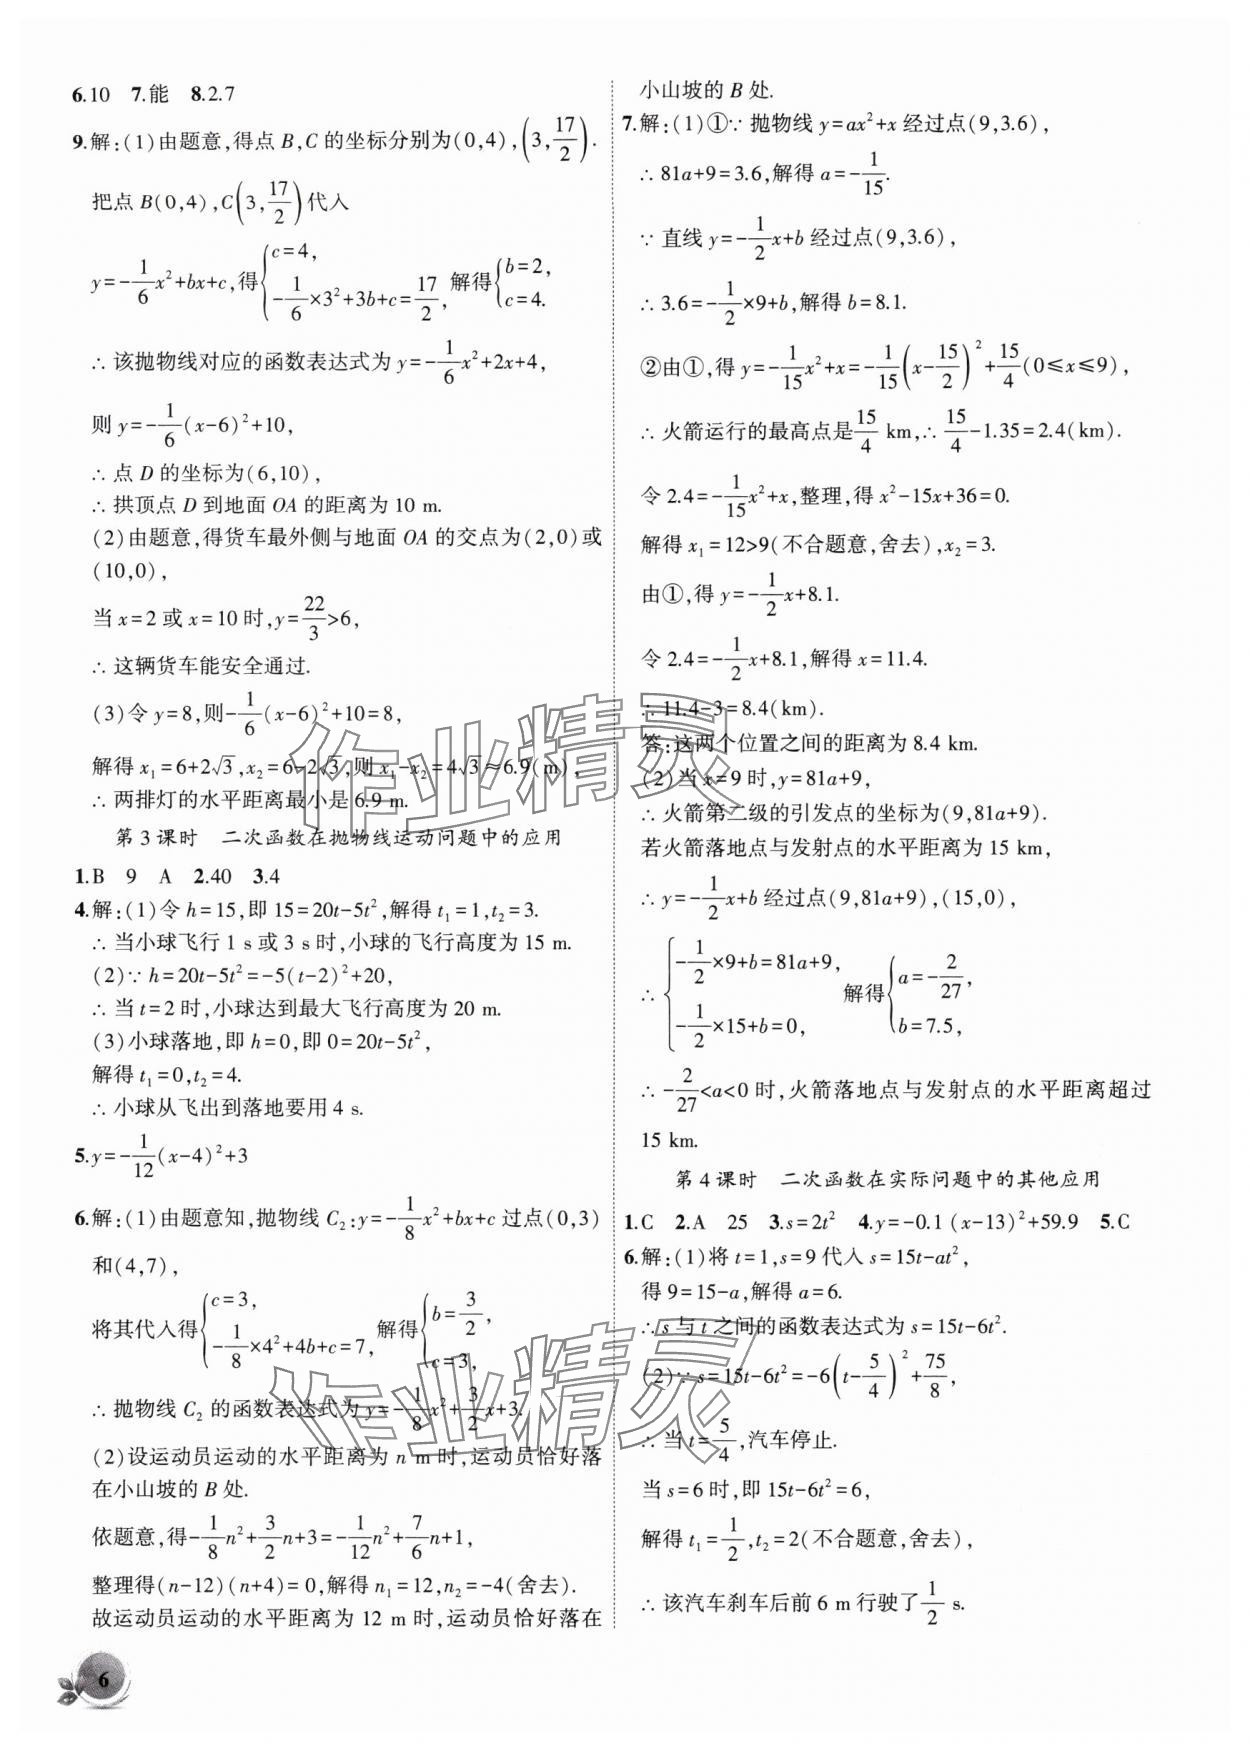 6.10　7.能　8.2.7
9.解:(1)由题意,得点 B,C 的坐标分别为(0,4),(3,17/2).
把点 B(0,4),C(3,17/2)代入
y=-1/6x²+bx+c,得{c=4, -1/6×3²+3b+c=17/2, 解得{b=2, c=4.
∴ 该抛物线对应的函数表达式为 y=-1/6x²+2x+4,
则 y=-1/6(x-6)²+10,
∴ 点 D 的坐标为(6,10),
∴ 拱顶点 D 到地面 OA 的距离为 10 m.
(2)由题意,得货车最外侧与地面 OA 的交点为(2,0)或
(10,0),
当 x=2 或 x=10 时,y=22/3>6,
∴ 这辆货车能安全通过.
(3)令 y=8,则-1/6(x-6)²+10=8,
解得 x₁=6+2√3,x₂=6-2√3,则 x₁-x₂=4√3≈6.9(m),
∴ 两排灯的水平距离最小是 6.9 m.
第 3 课时　二次函数在抛物线运动问题中的应用
1.B　9　A　2.40　3.4
4.解:(1)令 h=15,即 15=20t-5t²,解得 t₁=1,t₂=3.
∴ 当小球飞行 1 s 或 3 s 时,小球的飞行高度为 15 m.
(2)∵ h=20t-5t²=-5(t-2)²+20,
∴ 当 t=2 时,小球达到最大飞行高度为 20 m.
(3)小球落地,即 h=0,即 0=20t-5t²,
解得 t₁=0,t₂=4.
∴ 小球从飞出到落地要用 4 s.
5.y=-1/12(x-4)²+3
6.解:(1)由题意知,抛物线 C₂:y=-1/8x²+bx+c 过点(0,3)
和(4,7),
将其代入得{c=3, -1/8×4²+4b+c=7, 解得{b=3/2, c=3,
∴ 抛物线 C₂ 的函数表达式为 y=-1/8x²+3/2x+3.
(2)设运动员运动的水平距离为 n m时,运动员恰好落
在小山坡的 B 处.
依题意,得-1/8n²+3/2n+3=-1/12n²+7/6n+1,
整理得(n-12)(n+4)=0,解得 n₁=12,n₂=-4(舍去).
故运动员运动的水平距离为 12 m 时,运动员恰好落在
6
小山坡的 B 处.
7.解:(1)①∵ 抛物线 y=ax²+x 经过点(9,3.6),
∴ 81a+9=3.6,解得 a=-1/15.
∵ 直线 y=-1/2x+b 经过点(9,3.6),
∴ 3.6=-1/2×9+b,解得 b=8.1.
②由①,得 y=-1/15x²+x=-1/15(x-15/2)²+15/4(0≤x≤9),
∴ 火箭运行的最高点是15/4 km,∴ 15/4-1.35=2.4(km).
令 2.4=-1/15x²+x,整理,得 x²-15x+36=0.
解得 x₁=12>9(不合题意,舍去),x₂=3.
由①,得 y=-1/2x+8.1.
令 2.4=-1/2x+8.1,解得 x=11.4.
∴ 11.4-3=8.4(km).
答:这两个位置之间的距离为 8.4 km.
(2)当 x=9 时,y=81a+9,
∴ 火箭第二级的引发点的坐标为(9,81a+9).
若火箭落地点与发射点的水平距离为 15 km,
∴ y=-1/2x+b 经过点(9,81a+9),(15,0),
∴ {-1/2×9+b=81a+9, -1/2×15+b=0, 解得{a=-2/27, b=7.5,
∴ -2/27<a<0 时,火箭落地点与发射点的水平距离超过
15 km.
第 4 课时　二次函数在实际问题中的其他应用
1.C　2.A　25　3.s=2t²　4.y=-0.1(x-13)²+59.9　5.C
6.解:(1)将 t=1,s=9 代入 s=15t-at²,
得 9=15-a,解得 a=6.
∴ s 与 t 之间的函数表达式为 s=15t-6t².
(2)∵ s=15t-6t²=-6(t-5/4)²+75/8,
∴ 当 t=5/4,汽车停止.
当 s=6 时,即 15t-6t²=6,
解得 t₁=1/2,t₂=2(不合题意,舍去),
∴ 该汽车刹车后前 6 m 行驶了1/2 s.
作业精灵
作业精灵